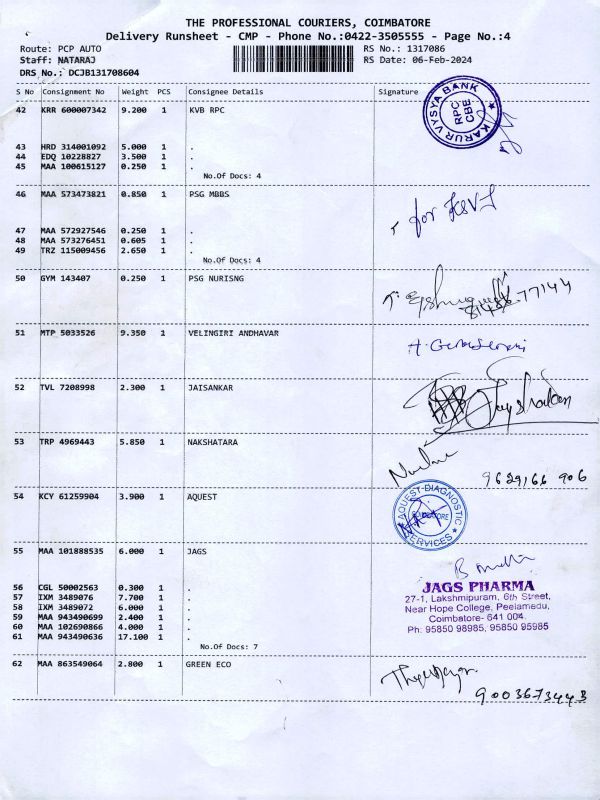 THE PROFESSIONAL COURIERS, COIMBATORE
Delivery Runsheet - CMP - Phone No.:0422-3505555 - Page No.:4
Route: PCP AUTO RS No.: 1317086
Staff: NATARAJ RS Date: 06-Feb-2024
DRS No.: DCJB131708604
S No Consignment No Weight PCS Consignee Details Signature
42 KRR 600007342 9.200 1 KVB RPC
KARUR VYSYA BANK
RPC
CBE
43 HRD 314001092 5.000 1 .
44 EDQ 10228827 3.500 1 .
45 MAA 100615127 0.250 1 .
No.Of Docs: 4
46 MAA 573473821 0.850 1 PSG MBBS
for
47 MAA 572927546 0.250 1 .
48 MAA 573276451 0.605 1 .
49 TRZ 115009456 2.650 1 .
No.Of Docs: 4
50 GYM 143407 0.250 1 PSG NURISNG
51 MTP 5033526 9.350 1 VELINGIRI ANDHAVAR
52 TVL 7208998 2.300 1 JAISANKAR
53 TRP 4969443 5.850 1 NAKSHATARA
9629166 906
54 KCY 61259904 3.900 1 AQUEST
AQUEST DIAGNOSTIC
SERVICES
55 MAA 101888535 6.000 1 JAGS
56 CGL 50002563 0.300 1 .
57 IXM 3489076 7.700 1 .
58 IXM 3489072 6.000 1 .
59 MAA 943490699 2.400 1 .
60 MAA 102690866 4.000 1 .
61 MAA 943490636 17.100 1 .
No.Of Docs: 7
JAGS PHARMA
27-1, Lakshmipuram, 6th Street,
Near Hope College, Peelamedu,
Coimbatore- 641 004.
Ph: 95850 98985, 95850 95985
62 MAA 863549064 2.800 1 GREEN ECO
9003673443